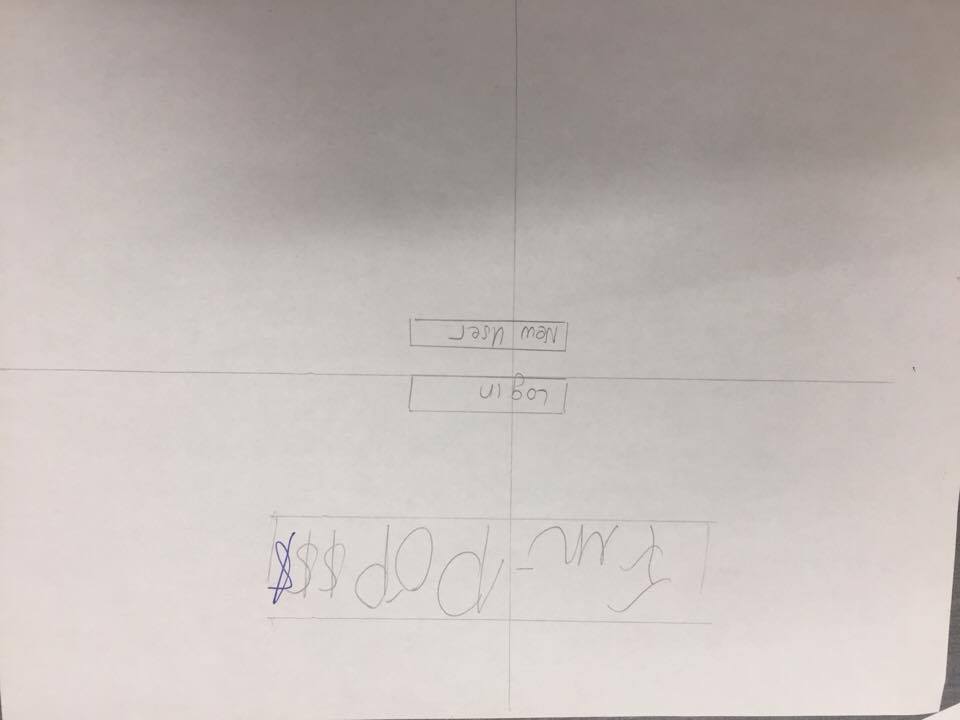 Fun-POP$$$
Log in
New User